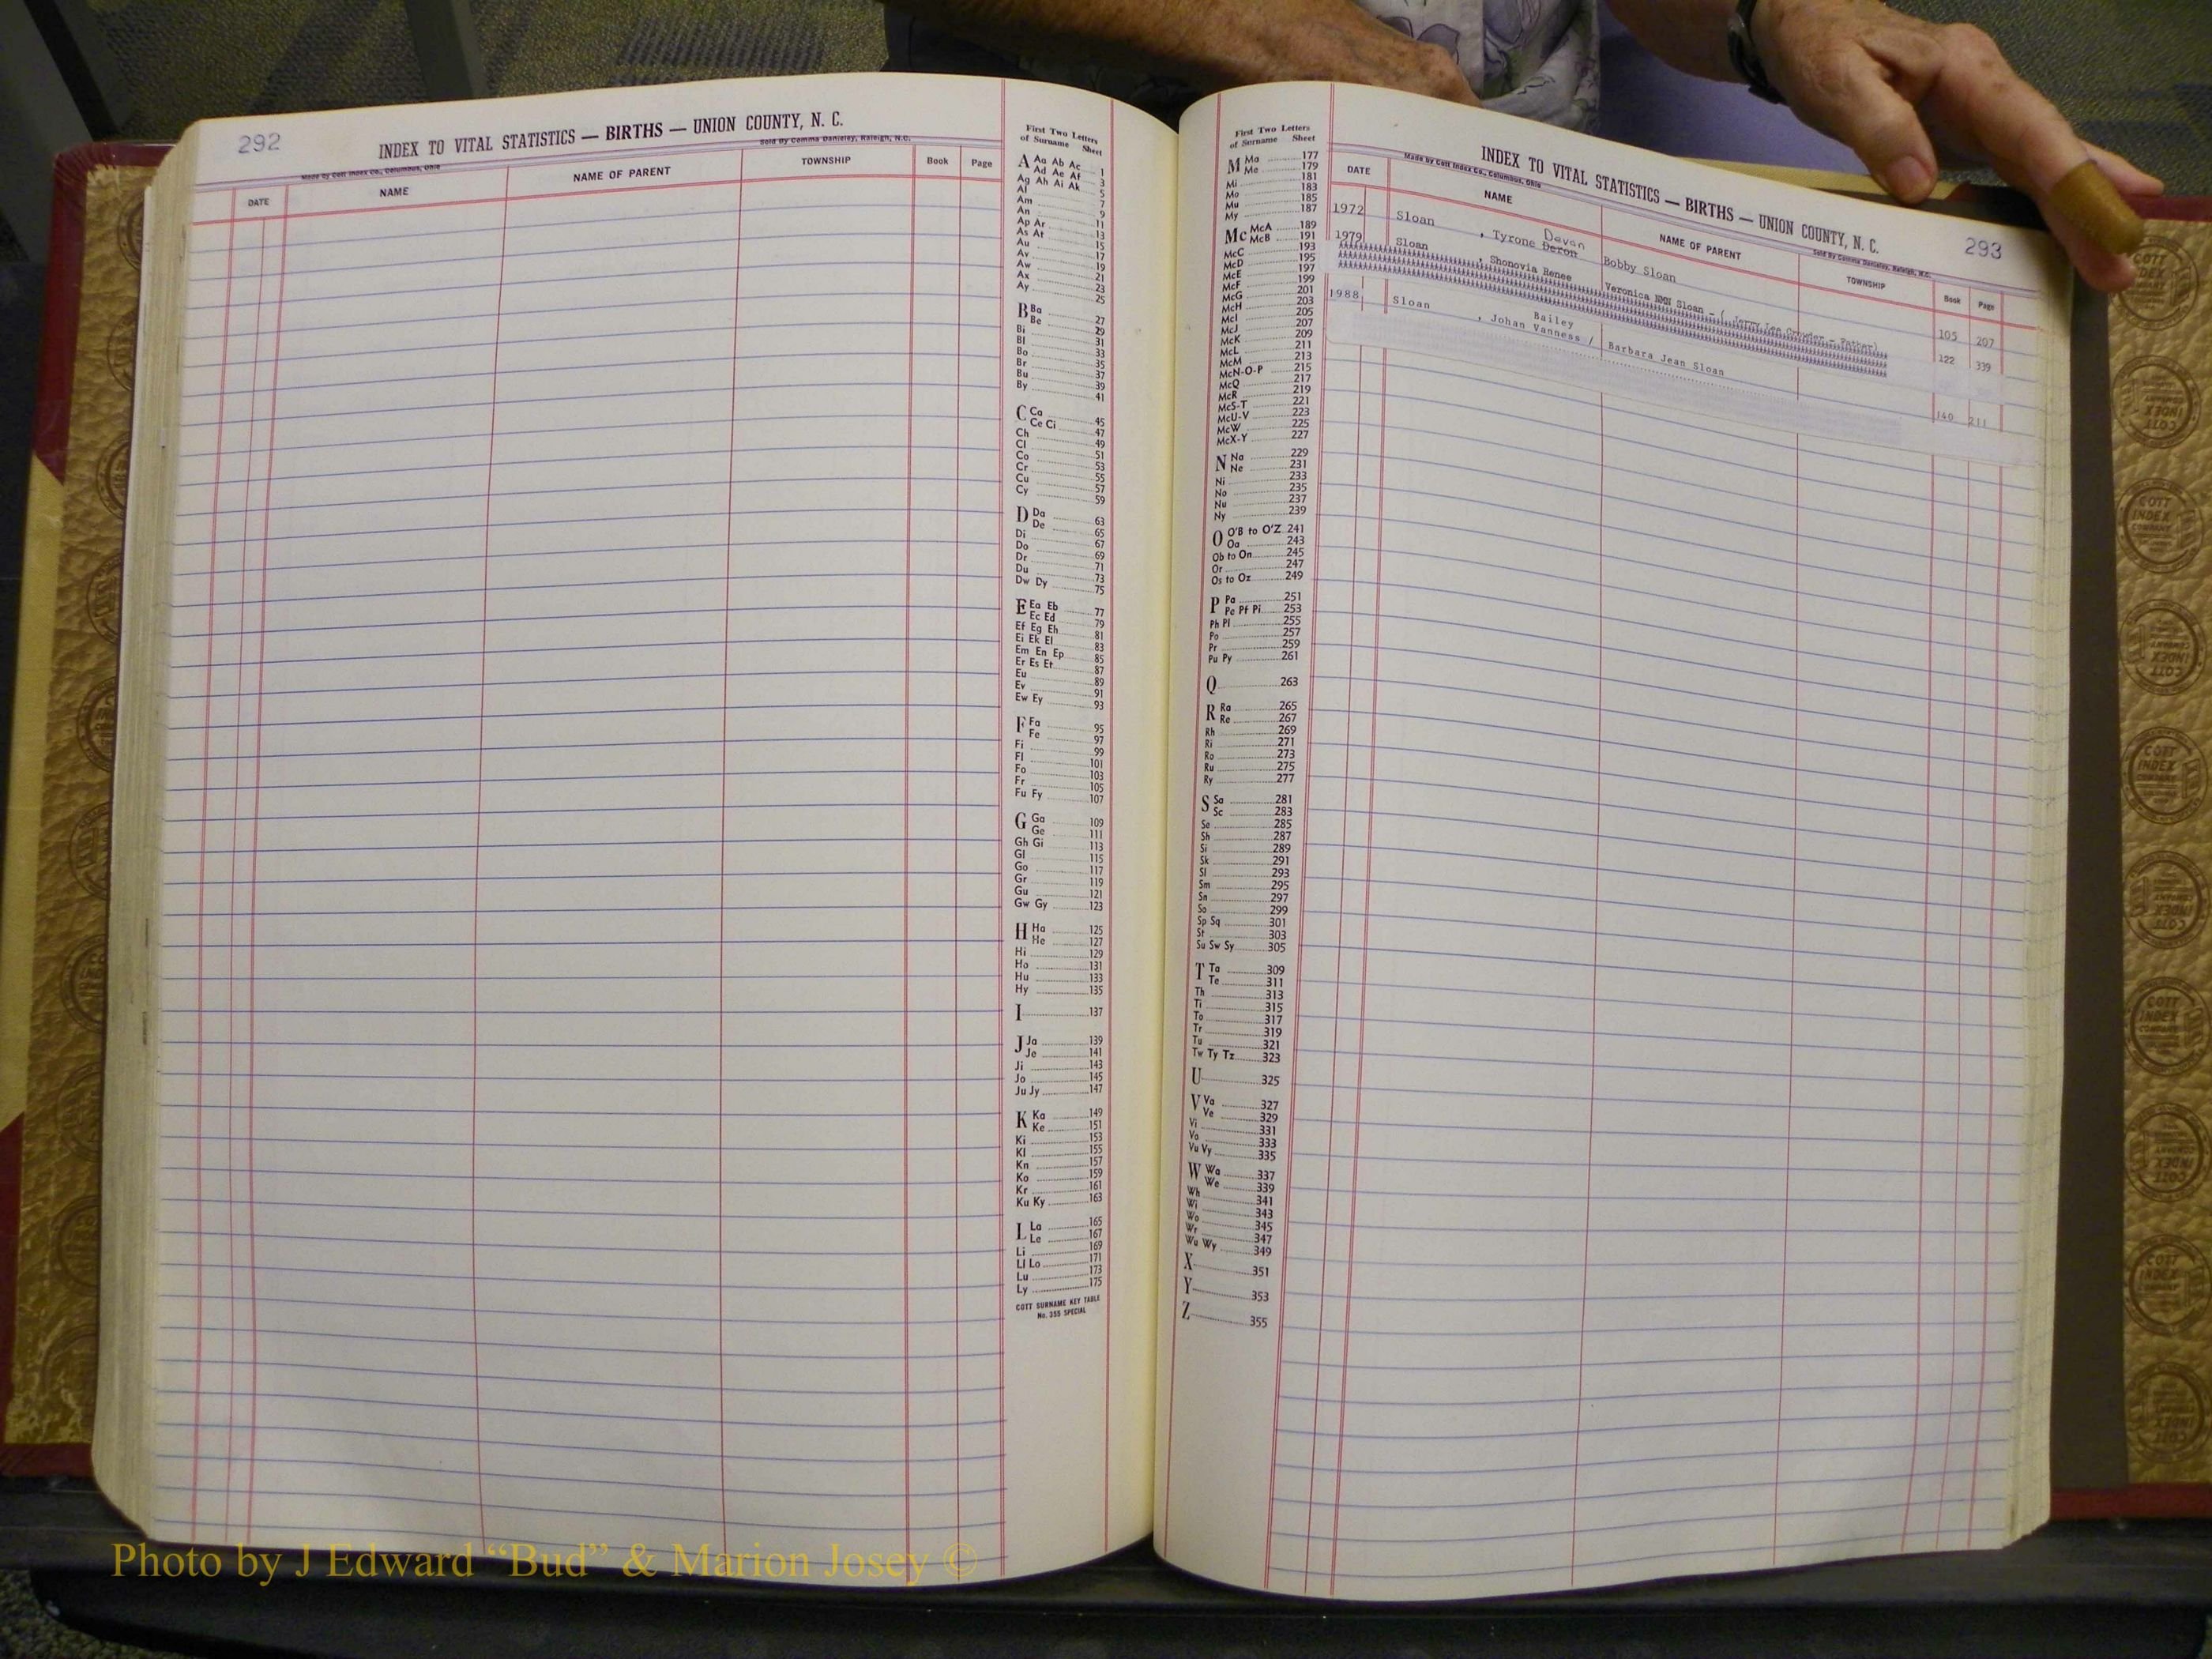 292
INDEX TO VITAL STATISTICS — BIRTHS — UNION COUNTY, N. C.
Made by Cott Index Co., Columbus, Ohio
Sold By Comma Danieley, Raleigh, N.C.
DATE NAME NAME OF PARENT TOWNSHIP Book Page
First Two Letters
of Surname Sheet
A Aa Ab Ac 1
Ad Ae Af 3
Ag Ah Ai Ak 5
Al 7
Am 9
An 11
Ap Ar 13
As At 15
Au 17
Av 19
Aw 21
Ax 23
Ay 25
B Ba 27
Be 29
Bi 31
Bl 33
Bo 35
Br 37
Bu 39
By 41
C Ca 45
Ce Ci 47
Ch 49
Cl 51
Co 53
Cr 55
Cu 57
Cy 59
D Da 63
De 65
Di 67
Do 69
Dr 71
Du 73
Dw Dy 75
E Ea Eb 77
Ec Ed 79
Ef Eg Eh 81
Ei Ek El 83
Em En Ep 85
Er Es Et 87
Eu 89
Ev 91
Ew Ey 93
F Fa 95
Fe 97
Fi 99
Fl 101
Fo 103
Fr 105
Fu Fy 107
G Ga 109
Ge 111
Gh Gi 113
Gl 115
Go 117
Gr 119
Gu 121
Gw Gy 123
H Ha 125
He 127
Hi 129
Ho 131
Hu 133
Hy 135
I 137
J Ja 139
Je 141
Ji 143
Jo 145
Ju Jy 147
K Ka 149
Ke 151
Ki 153
Kl 155
Kn 157
Ko 159
Kr 161
Ku Ky 163
L La 165
Le 167
Li 169
Ll Lo 171
Lu 173
Ly 175
COTT SURNAME KEY TABLE
No. 355 SPECIAL
First Two Letters
of Surname Sheet
M Ma 177
Me 179
Mi 181
Mo 183
Mu 185
My 187
Mc McA 189
McB 191
McC 193
McD 195
McE 197
McF 199
McG 201
McH 203
McI 205
McJ 207
McK 209
McL 211
McM 213
McN-O-P 215
McQ 217
McR 219
McS-T 221
McU-V 223
McW 225
McX-Y 227
N Na 229
Ne 231
Ni 233
No 235
Nu 237
Ny 239
O O'B to O'Z 241
Oa 243
Ob to On 245
Or 247
Os to Oz 249
P Pa 251
Pe Pf Pi 253
Ph Pl 255
Po 257
Pr 259
Pu Py 261
Q 263
R Ra 265
Re 267
Rh 269
Ri 271
Ro 273
Ru 275
Ry 277
S Sa 281
Sc 283
Se 285
Sh 287
Si 289
Sk 291
Sl 293
Sm 295
Sn 297
So 299
Sp Sq 301
St 303
Su Sw Sy 305
T Ta 309
Te 311
Th 313
Ti 315
To 317
Tr 319
Tu 321
Tw Ty Tz 323
U 325
V Va 327
Ve 329
Vi 331
Vo 333
Vu Vy 335
W Wa 337
We 339
Wh 341
Wi 343
Wo 345
Wr 347
Wu Wy 349
X 351
Y 353
Z 355
INDEX TO VITAL STATISTICS — BIRTHS — UNION COUNTY, N. C.
293
Made by Cott Index Co., Columbus, Ohio
Sold By Comma Danieley, Raleigh, N.C.
DATE NAME NAME OF PARENT TOWNSHIP Book Page
Devon
1972 Sloan , Tyrone Deron Bobby Sloan 105 207
1979 Sloan , Shonovia Renee Veronica NMN Sloan - ( Jerry Lee Crowder - Father) 122 339
Bailey
1988 Sloan , Johan Vanness / Barbara Jean Sloan 140 211
COTT
INDEX
COMPANY
Photo by J Edward “Bud” & Marion Josey ©